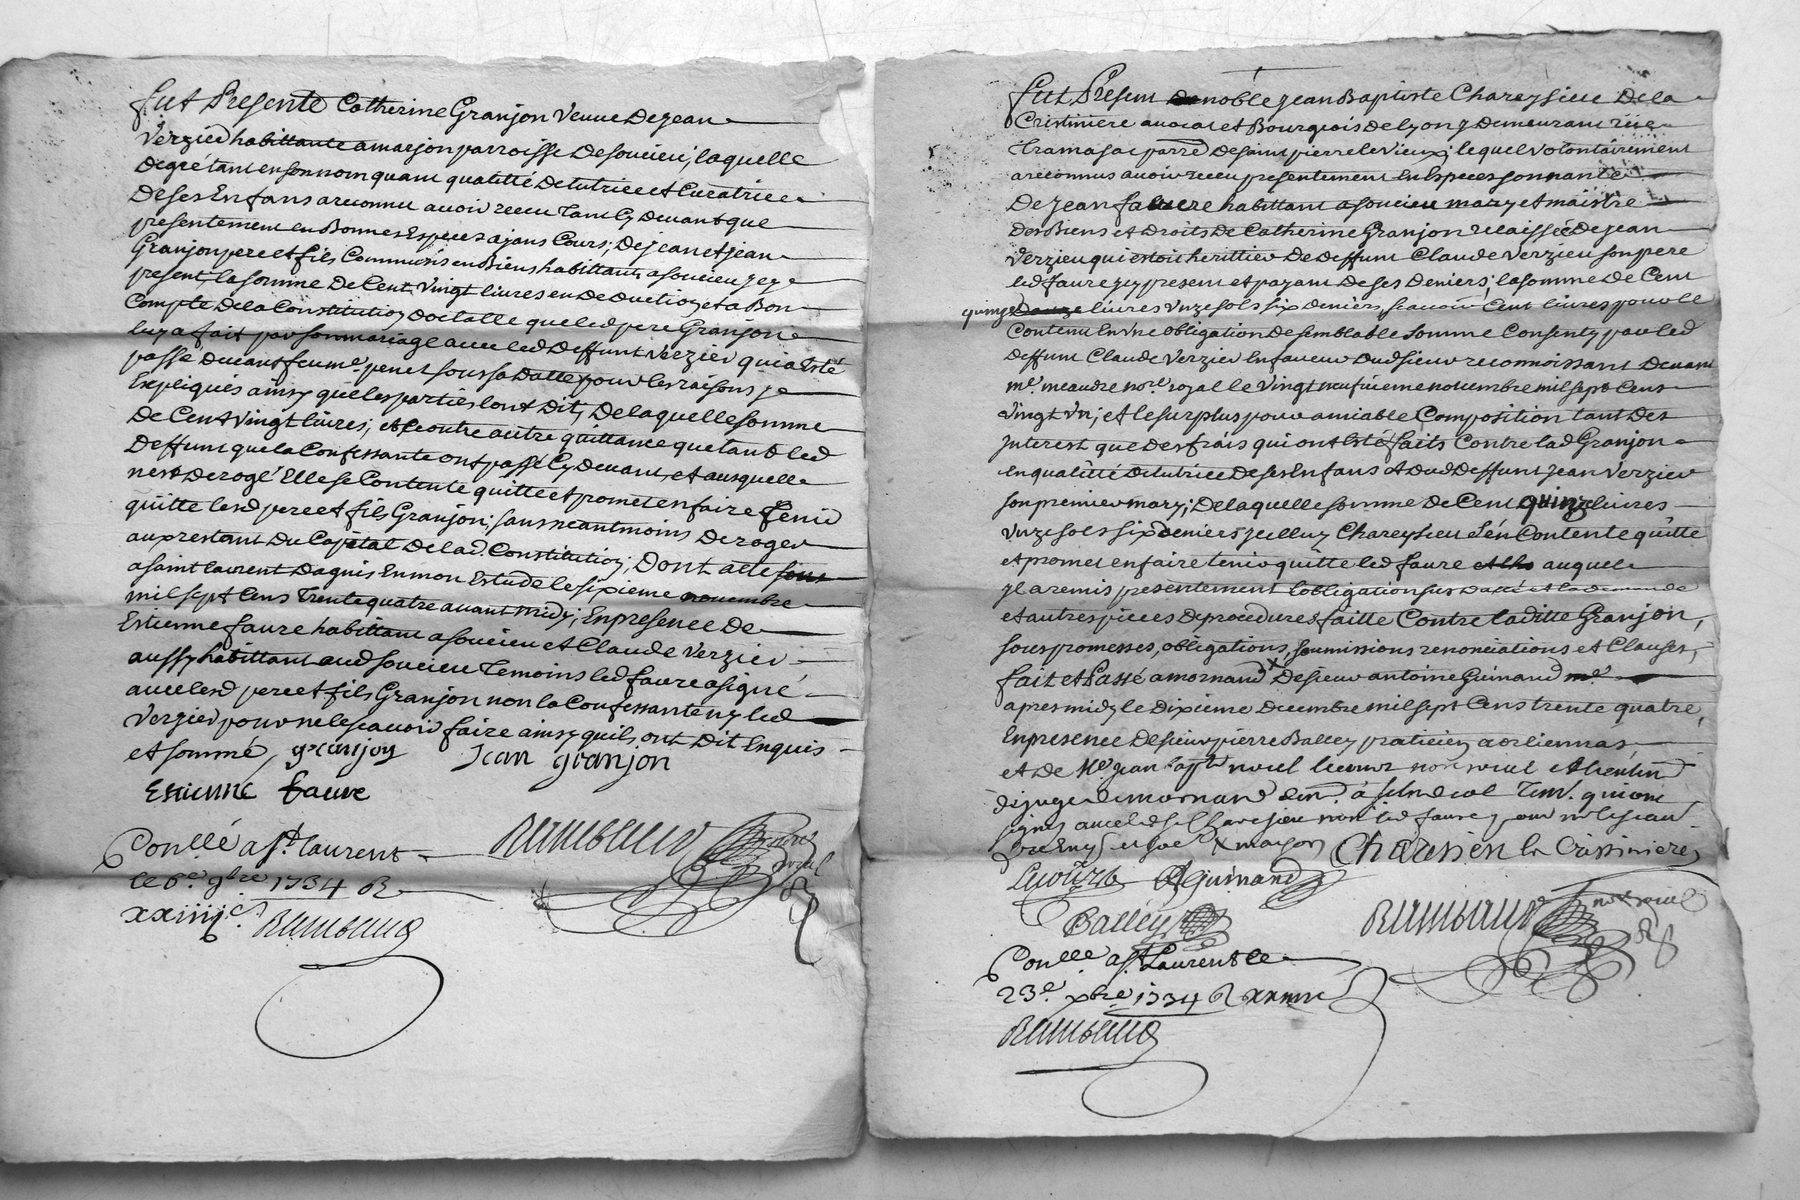 fut Presente Catherine Granjon Veuve De jean
Verzieu habittante a marjon parroisse De soucieu; laquelle
De gré tant en son nom quant qualitté De tutrice et Curatrice
De ses Enfans a reconnu avoir receu tant Cy Devant que
presentement en Bonnes Especes ayans Cours; De jean et jean
Granjon pere et fils Communs en Biens habittants a soucieu jcy
present, la somme De Cent Vingt livres en De Duction et a Bon
Compte De la Constitution Doctalle que led pere Granjon
luy a fait par son mariage avec led Deffunt Verzieu qui a Esté
passé Devant feu me. penet sous sa Datte pour les raisons y
Expliqués ainsy que les parties l'ont Dit, De laquelle somme
De Cent Vingt livres, et contre autre quittance que tant led
Deffunt que la Confessante ont passé Cy Devant, et ausquelle
nest Derogé Elle se Contente quitte et promet en faire tenir
quitte lesd pere et fils Granjon; sans neantmoins Deroger
aux restant Du Capital De lad. Constitution; Dont acte
a saint laurent Dagnis En mon Estude le sixieme novembre
mil sept Cens Trente quatre avant midy; En presence De
Estienne faure habittant a soucieu et Claude Verzieu
aussy habittant aud soucieu Temoins led faure a signé
avec lesd pere et fils Granjon non la Confessante ny led
Verzieu pour ne le sçavoir faire ainsy quils ont Dit Enquis
et sommé, granjon Jean granjon
Estienne faure
Conllé a St. laurent
le 6e. 9bre 1734 R
xxiiij s.
fut Present noble jean Baptiste Chareysieu De la
Cristiniere avocat et Bourgeois De lyon y Demeurant rüe
Tramasac parre De saint pierre le Vieux; lequel volontairement
a reconnus avoir receu presentement En Especes sonnante
De jean faure habittant a soucieu mary et maistre
Des Biens et Droits De Catherine Granjon relaissée De jean
Verzieu qui estoit herittier De Deffunt Claude Verzieu son pere
led faure jcy present et payant De ses Deniers; la somme De Cent
quinze livres Unze sols six deniers, sçavoir Cent livres pour le
Contenu En Une obligation De semblable somme Consenty par led
Deffunt Claude Verzier En faveur Dud sieur reconnoissant Devant
me. meaudre nore royal le Vingt neufvieme novembre mil sept Cens
Vingt Un; et le surplus pour amiable Composition tant Des
Interest que Des frais qui ont Esté faits Contre lad Granjon
En qualitté De tutrice De ses Enfans et Dud Deffunt jean Verzieu
son premier mary; De laquelle somme De Cent quinze livres
Unze sols six deniers jcelluy Chareysieu s'en Contente quitte
et promet en faire tenir quitte led faure auquel
jl a remis presentement l'obligation sus Datté et la demande
et autres pieces De procedures faitte Contre laditte Granjon,
sous promesses, obligations, soumissions renonciations et Clauses,
fait et Passé a mornand x De sieur antoine Guinand
apres midy le Dixieme Decembre mil sept Cens trente quatre,
En presence De sieur pierre Balley praticien a orliennas,
et de Me. jean bapte noiel lecourt nore royal et lieutent
signés avec led sr Chareysieu non led faure pour ne le sçavoir
x maison Chareysieu la Cristiniere
Guinand
Balley
Conlle. a St. Laurent le
23e. xbre 1734 R